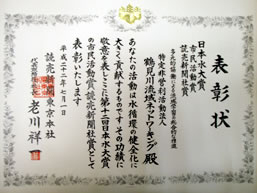 表彰状
日本水大賞
市民活動賞
読売新聞社賞
特定非営利活動法人
鶴見川流域ネットワーキング 殿
あなたの活動は水循環の健全化に
大きく貢献するものです その功績に
敬意を表しここに第十二回日本水大賞
の市民活動賞読売新聞社賞として
表彰いたします
平成二十二年七月一日
読売新聞東京本社
老川祥一